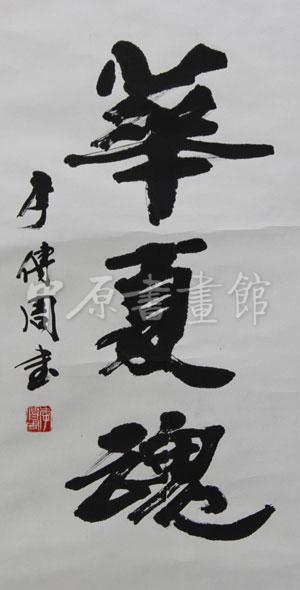 華夏魂
傳周書
中原書畫館